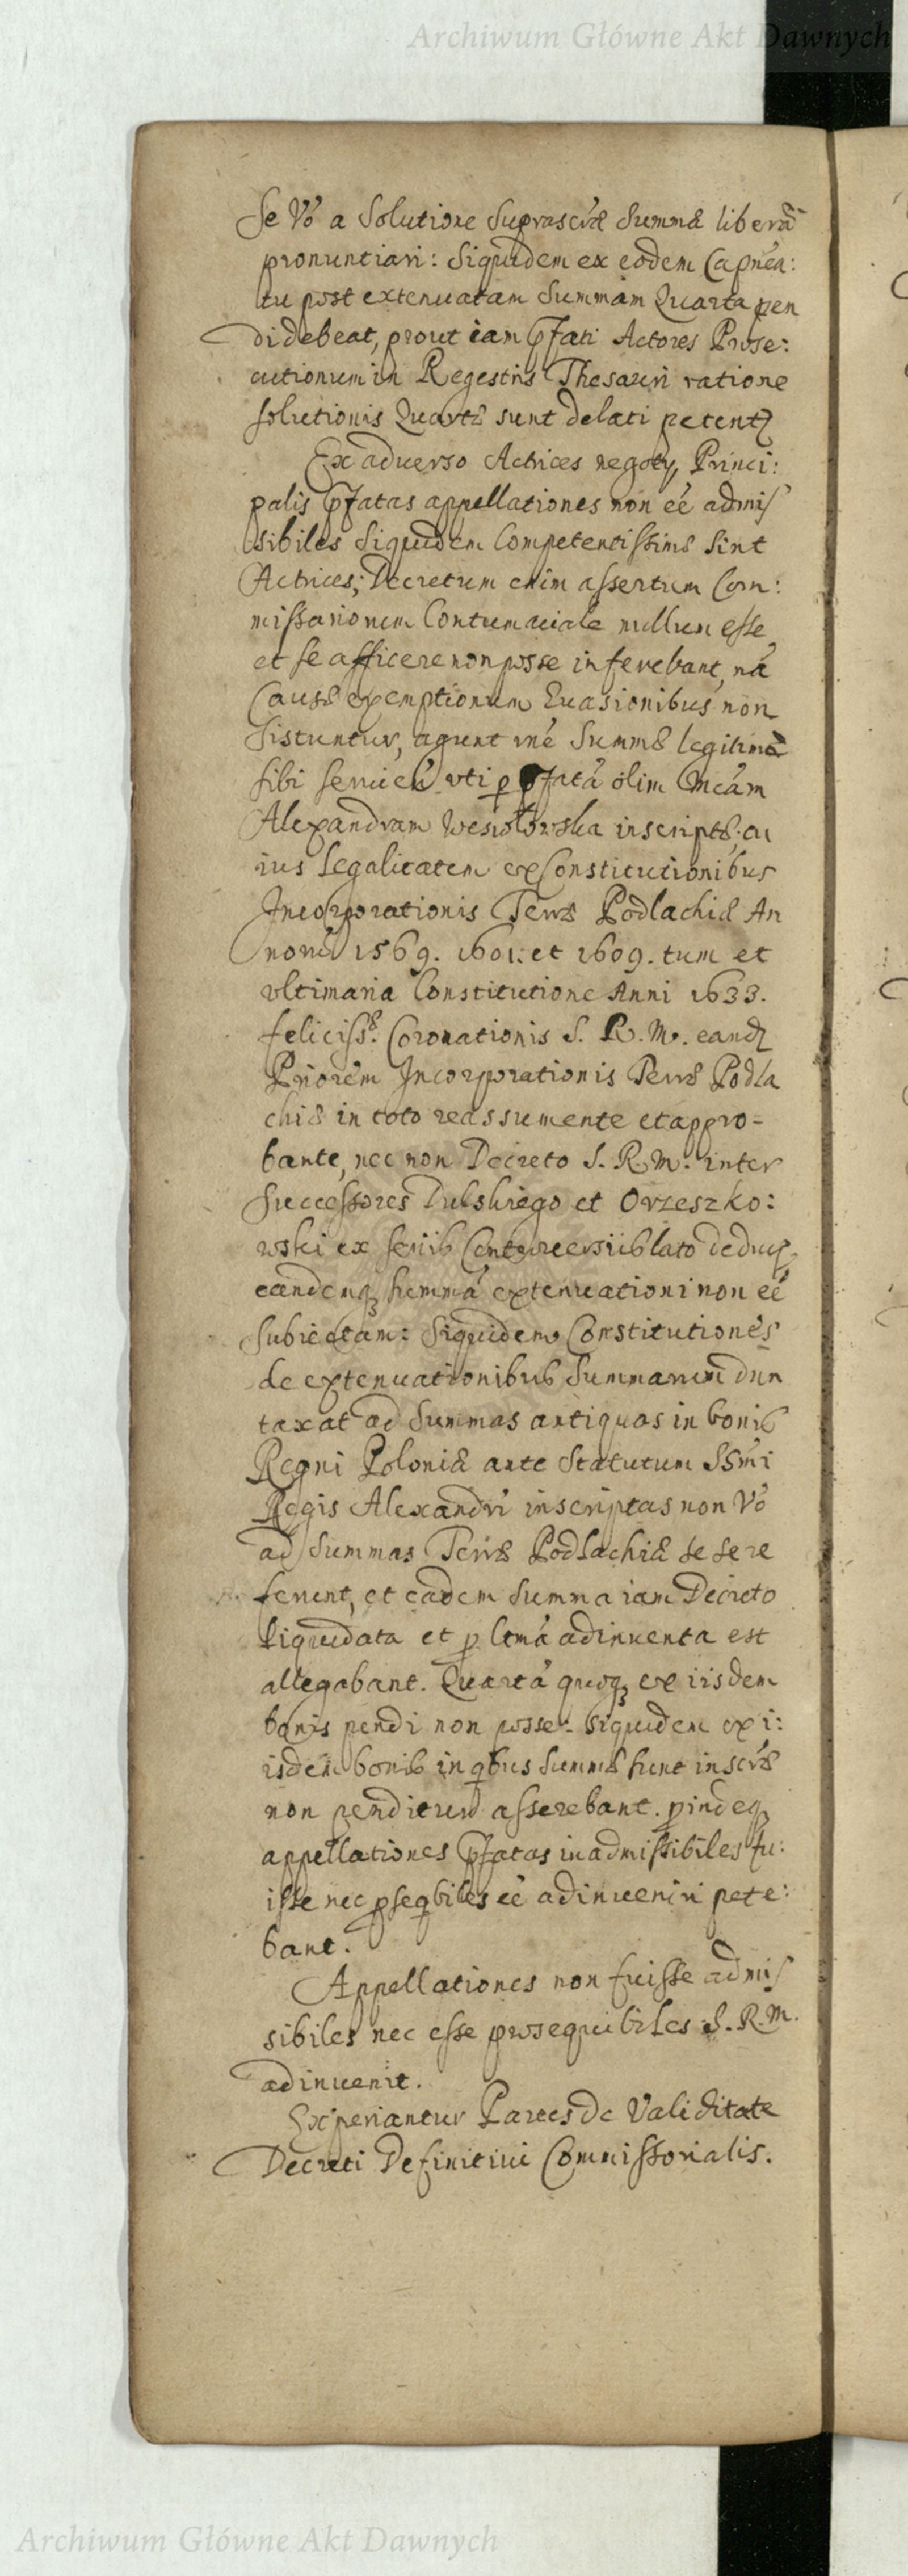 Archiwum Główne Akt Dawnych
Se Vó a Solutione Suprascrae Summae liberá
pronuntiari: Siquidem ex eodem Capnea:
tu post extenuatam Summam Quarta pen
di debeat, prout iam pfati Actores Prose:
cutionum in Regestris Thesauri ratione
solutionis Quartae sunt delati petentq
Ex aduerso Actrices negoty, Princi:
palis pfatas appellationes non eé admis
sibiles Siquidem Competentissimae Sint
Actrices; Decretum enim assertum Com:
missariorum Contumaciale nullum esse
et se afficere non posse inferebant, ná
Causae exemptionum Euasionibus non
Sistuntur, agunt rné Summae legitimae
sibi seruien uti p pfatá olim Mcám
Alexandram Wesiolowska inscriptae, cu
ius Legalitatem ex Constitutionibus
Incorporationis Terrae Podlachiae An
noru 1569. 1601. et 1609. tum et
vltimaria Constitutione Anni 1633.
feliciss. Coronationis S. R. M. eandq
Priorem Incorporationis Terrae Podla
chiae in toto reassumente et appro-
bante, nec non Decreto S. R. M. inter
Successores Dulskiego et Orzeszko:
wski ex seriib Controuersiib lato deduq
eandemq summá extenuationi non eé
Subiectam: Siquidem Constitutiones
de extenuationibus Summarum dun
taxat ad Summas antiquas in bonis
Regni Poloniae ante Statutum SSmi
Regis Alexandri inscriptas non Vó
ad Summas Terrae Podlachiae se se re
ferunt, et eadem Summa iam Decreto
liquidata et p ltmá adinuenta est
allegabant. Quartá quoq ex iisdem
bonis pendi non posse. Siquidem ex i:
isdem bonis in qbus Summae sunt inscrae
non penditur asserebant. pindeq
appellationes pfatas inadmissibiles fu:
isse nec pseqbiles eé adinueniri pete:
bant.
Appellationes non fuisse admis
sibiles nec esse prosequibiles S. R. M.
adinuenit.
Experiantur Partes de Validitate
Decreti Definitiui Commissorialis.
Archiwum Główne Akt Dawnych